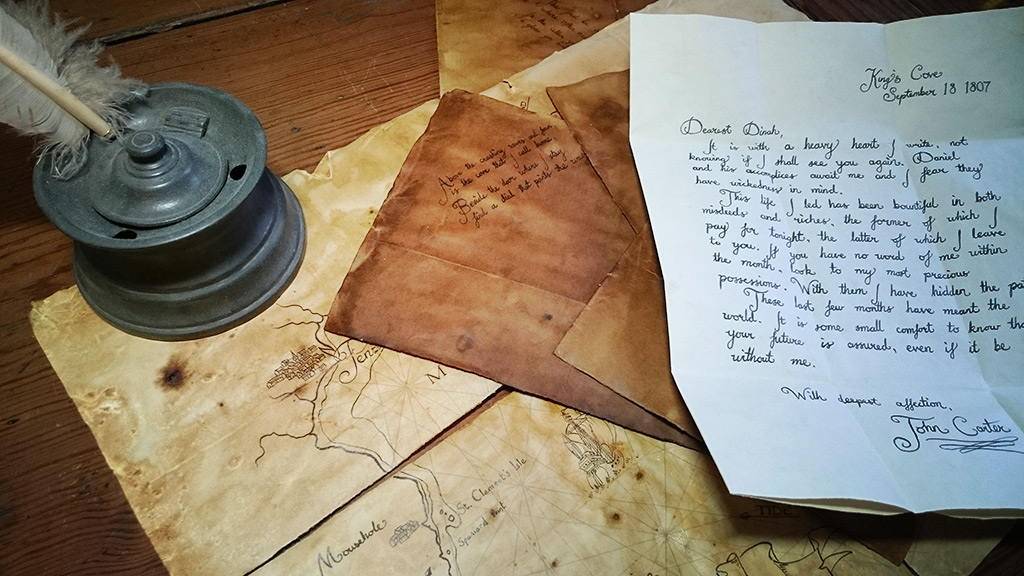 King's Cove
September 13 1807
Dearest Dinah,
It is with a heavy heart I write, not
knowing if I shall see you again. Daniel
and his accomplices await me and I fear they
have wickedness in mind.
This life I led has been bountiful in both
misdeeds and riches, the former of which I
pay for tonight, the latter of which I leave
to you. If you have no word of me within
the month, look to my most precious
possessions. With them I have hidden the
These last few months have meant the
world. It is some small comfort to know
your future is assured, even if it be
without me.
With deepest affection,
John Carter
Above the crashing waves
Is the one that
Beside the
find a that
Fen
M
St. Clement's Isle
Spaniard Point
Mousehole
TIDE